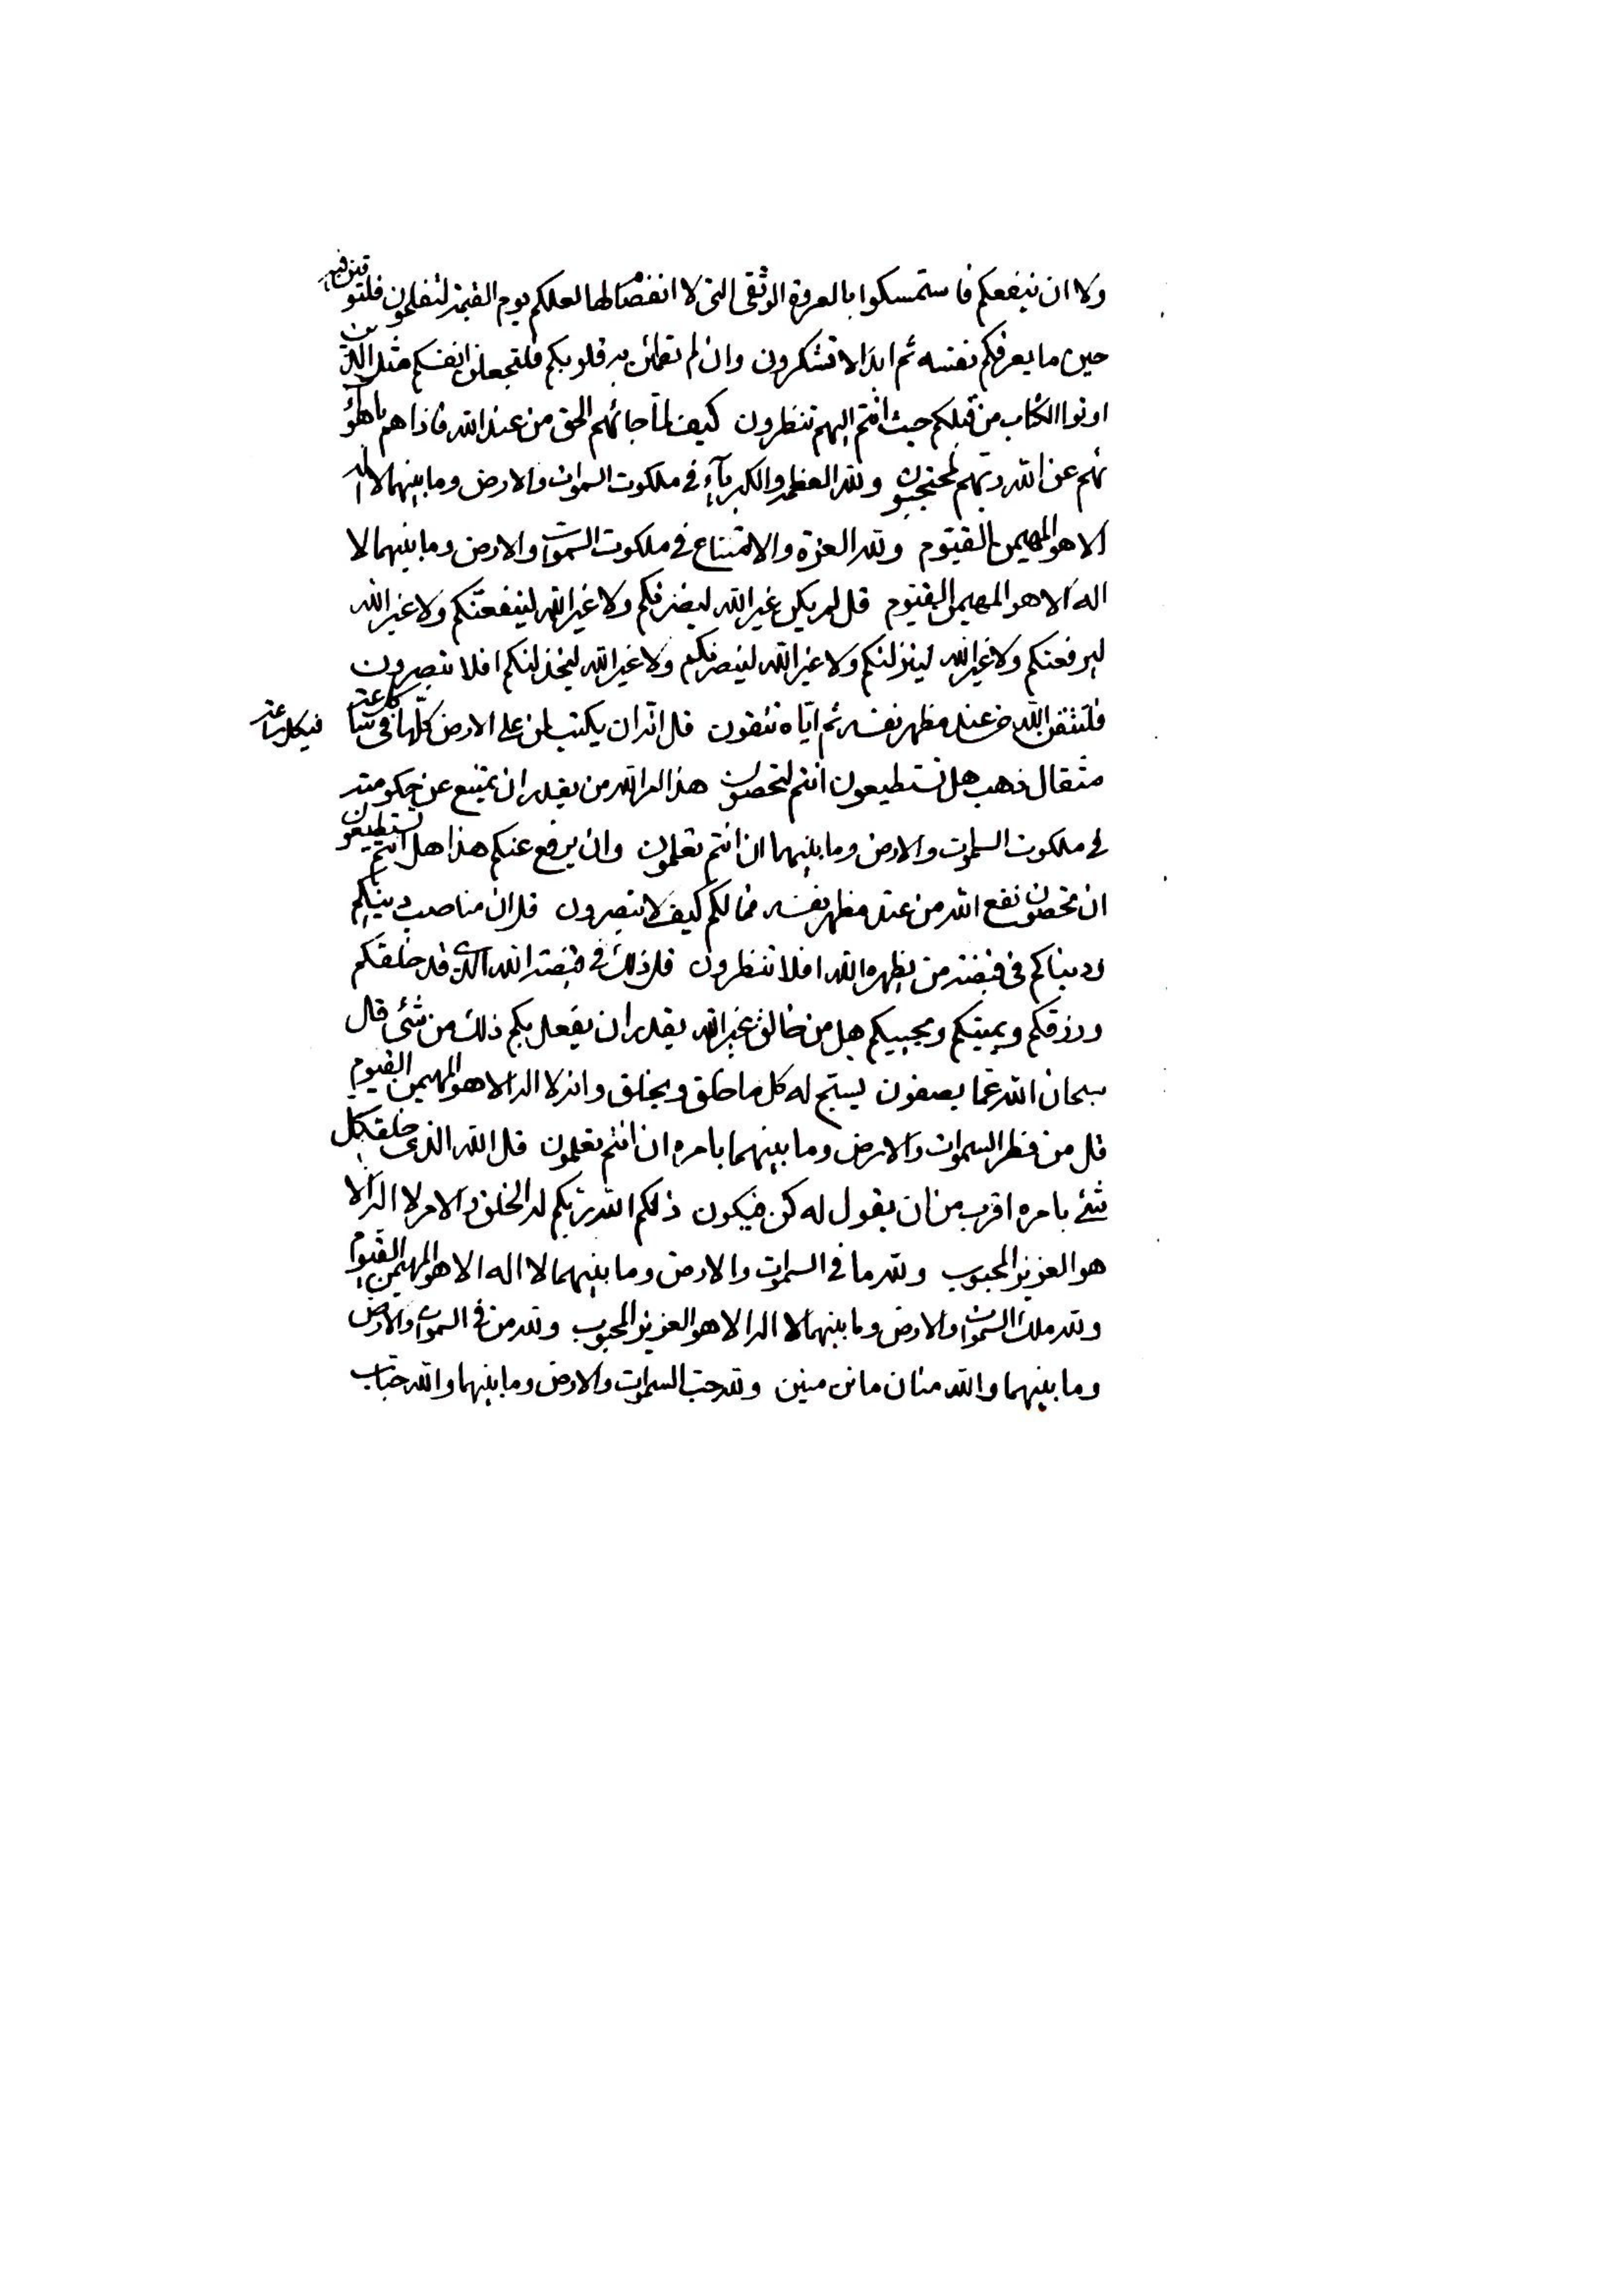 ولا ان ينفعكم فاستمسكوا بالعروة الوثقى التى لا انفصام لها لعلكم يوم القيمة لتفلحون فلتوقنن فيه
حين ما يعرفكم نفسه ثم ابدا لا تشكرون وان لم تطمئن به قلوبكم فلتجعلن انفسكم مثل الذين
اوتوا الكتاب من قبلكم حيث انتم اليهم تنظرون كيف لما جائهم الحق من عند الله فاذا هم باهوا
ئهم عن الله ربهم لمحتجبون ولله العظمة والكبرياء فى ملكوت السموات والارض وما بينهما لا اله
الا هو المهيمن القيوم ولله العزة والامتناع فى ملكوت السموات والارض وما بينهما لا
اله الا هو المهيمن القيوم قل لم يكن غير الله ليضرنكم ولا غير الله لينفعنكم ولا غير الله
ليرفعنكم ولا غير الله لينزلنكم ولا غير الله لينصرنكم ولا غير الله ليخذلنكم افلا تبصرون
فلتتقن الله من عند مظهر نفسه ثم اياه تتقون قل انه ان يكتب لمن على الارض كلها فى كل ساعة
فيكل ساعة
مثقال ذهب هل تستطيعون انتم لتحصون هذا امر الله من يقدر ان يمتنع عن حكومته
فى ملكوت السموات والارض وما بينهما ان انتم تعلمون وان يرفع عنكم هذا هل انتم تستطيعون
ان تحصون نفع الله من عند مظهر نفسه فما لكم كيف لا تبصرون قل ان مناصب دينكم
ودنياكم فى قبضة من يظهره الله افلا تنظرون قل ذلك فى قبضة الله الذى قد خلقكم
ورزقكم ويميتكم ويحييكم هل من خالق غير الله يقدر ان يفعل بكم ذلك من شئ قال
سبحان الله عما يصفون يسبح له كل ما خلق ويخلق وانه لا اله الا هو المهيمن القيوم
قل من فطر السموات والارض وما بينهما بامره ان انتم تعلمون قل الله الذى خلق كل
شئ بامره اقرب من ان يقول له كن فيكون ذلكم الله ربكم له الخلق والامر لا اله الا
هو العزيز المحبوب ولله ما فى السموات والارض وما بينهما لا اله الا هو المهيمن القيوم
ولله ملك السموات والارض وما بينهما لا اله الا هو العزيز المحبوب ولله من فى السموات والارض
وما بينهما والله منان مانن منين ولله حب السموات والارض وما بينهما والله حباب